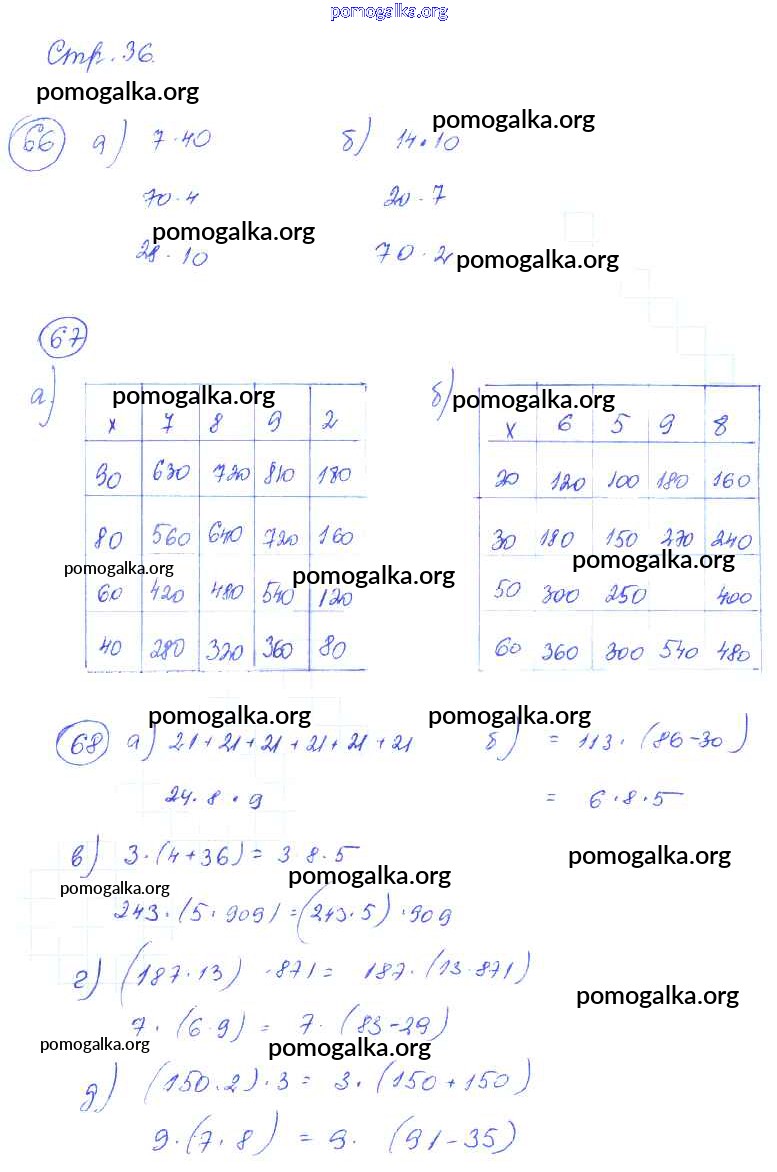 pomogalka.org
Стр. 36.
pomogalka.org
66 а) 7·40 б) 14·10 pomogalka.org
70·4 20·7
28·10 pomogalka.org 70·2 pomogalka.org
67
а) pomogalka.org б) pomogalka.org
x 7 8 9 2 x 6 5 9 8
90 630 720 810 180 20 120 100 180 160
80 560 640 720 160 30 180 150 270 240
pomogalka.org pomogalka.org pomogalka.org
60 420 480 540 120 50 300 250 400
40 280 320 360 80 60 360 300 540 480
pomogalka.org pomogalka.org
68 а) 21+21+21+21+21+21 б) = 113·(86-30)
24·8·9 = 6·8·5
в) 3·(4+36) = 3·8·5 pomogalka.org
pomogalka.org pomogalka.org
243·(5·909) = (243·5)·909
г) (187·13)·871 = 187·(13·871)
pomogalka.org
7·(6·9) = 7·(83-29)
pomogalka.org pomogalka.org
д) (150·2)·3 = 3·(150+150)
9·(7·8) = 9·(91-35)